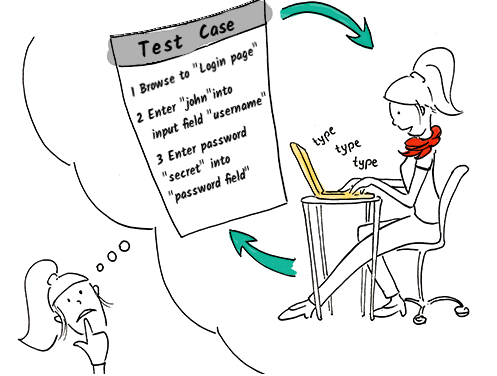 Test Case
1 Browse to "Login page"
2 Enter "john"into
input field "username"
3 Enter password
"secret" into
"password field"
type
type
type